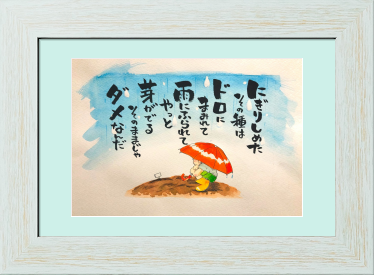 にぎりしめた
その種は
ドロに
まみれて
雨にふられて
やっと
芽がでる
そのままじゃ
ダメなんだ